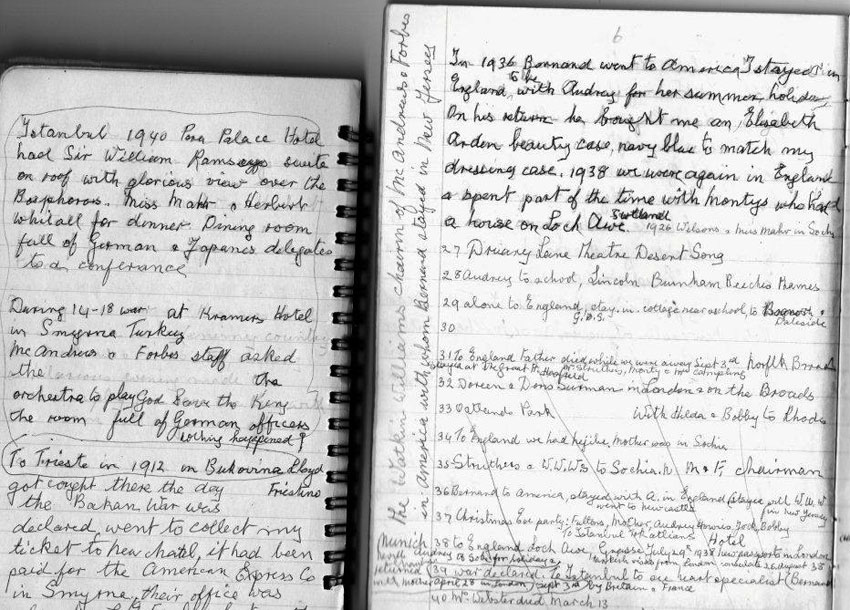 Istanbul 1940 Pera Palace Hotel
had Sir William Ramsay suite
on roof with glorious view over the
Bosphorous. Miss Mahr & Herbert
Whitall for dinner Dining room
full of German & Japanes delegates
to a conferance
During 14-18 war at Kramers Hotel
in Smyrna Turkey
McAndrews & Forbes staff asked
the the
orchestra to play God Save the King
the room full of German officers
nothing happened!
To Trieste in 1912 in Bukovina Lloyd
got caught there the day Triestino
the Balkan War was
declared went to collect my
ticket to neuchatel, it had been
paid for the American Express Co
in Smyrna, their office was
The Watkin Williams Chairm of McAndrews & Forbes
in America with whom Bernard stayed in New Jersey
6
In 1936 Bernard went to America I stayed in
England to be with Audrey for her summer holiday
On his return he bought me an Elizabeth
Arden beauty case, navy blue to match my
dressing case. 1938 we were again in England
& spent part of the time with Montys who had
a house on Loch Awe Scotland
1926 Wilsons & Miss Mahr in Sochi
27 Druary Lane Theatre Desert Song
28 Audrey to school, Lincoln Burnham Beeches Hames
29 alone to England, stay in cottage near school, to Bognor &
G.B.S.
30
31 To England Father died while we were away Sept 3rd Norfolk Broads
32 Doreen & Doris Surman in London & on the Broads
33 Oatlands Park With Hilda & Bobby to Rhods
34 To England we had Mother was in Sochia
35 Struthers & W.W.W's to Sochia. M & F, chairman
36 Bernard to America, stayed with A. in England stayed will W.W.W
went to newcastle in New Jersey
37 Christmas Eve party: Fallons, Mother, Audrey Jock, Bobby
To Istanbul Hotel
Munich 38 to England Loch Awe, July 29th 1938 new passports in London
returned 39 war declared. To Istanbul to see ear specialist (Bernard
with mother April 28 in London) Sept 3rd by Britain & France
40 Mr Webster died March 13